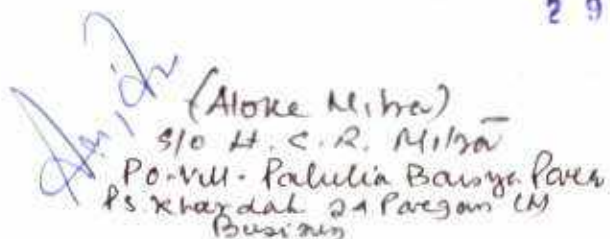 2 9
(Aloke Mitra)
S/o H. C. R. Mitra
Po-Vill- Patulia Baisya Para
Ps. Khardah 24 Pargans (N)
Business